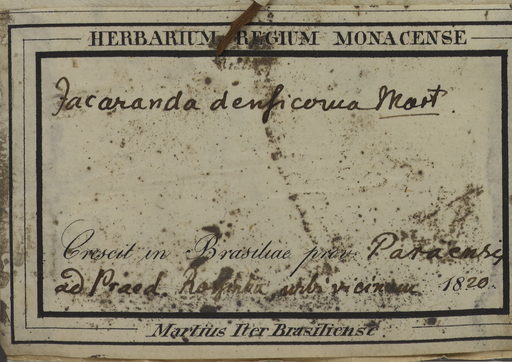 HERBARIUM REGIUM MONACENSE
Jacaranda densicoma Mart.
Crescit in Brasiliae prov. Paraensi
ad Praed. urbi vicinum 1820
Martius Iter Brasiliense.